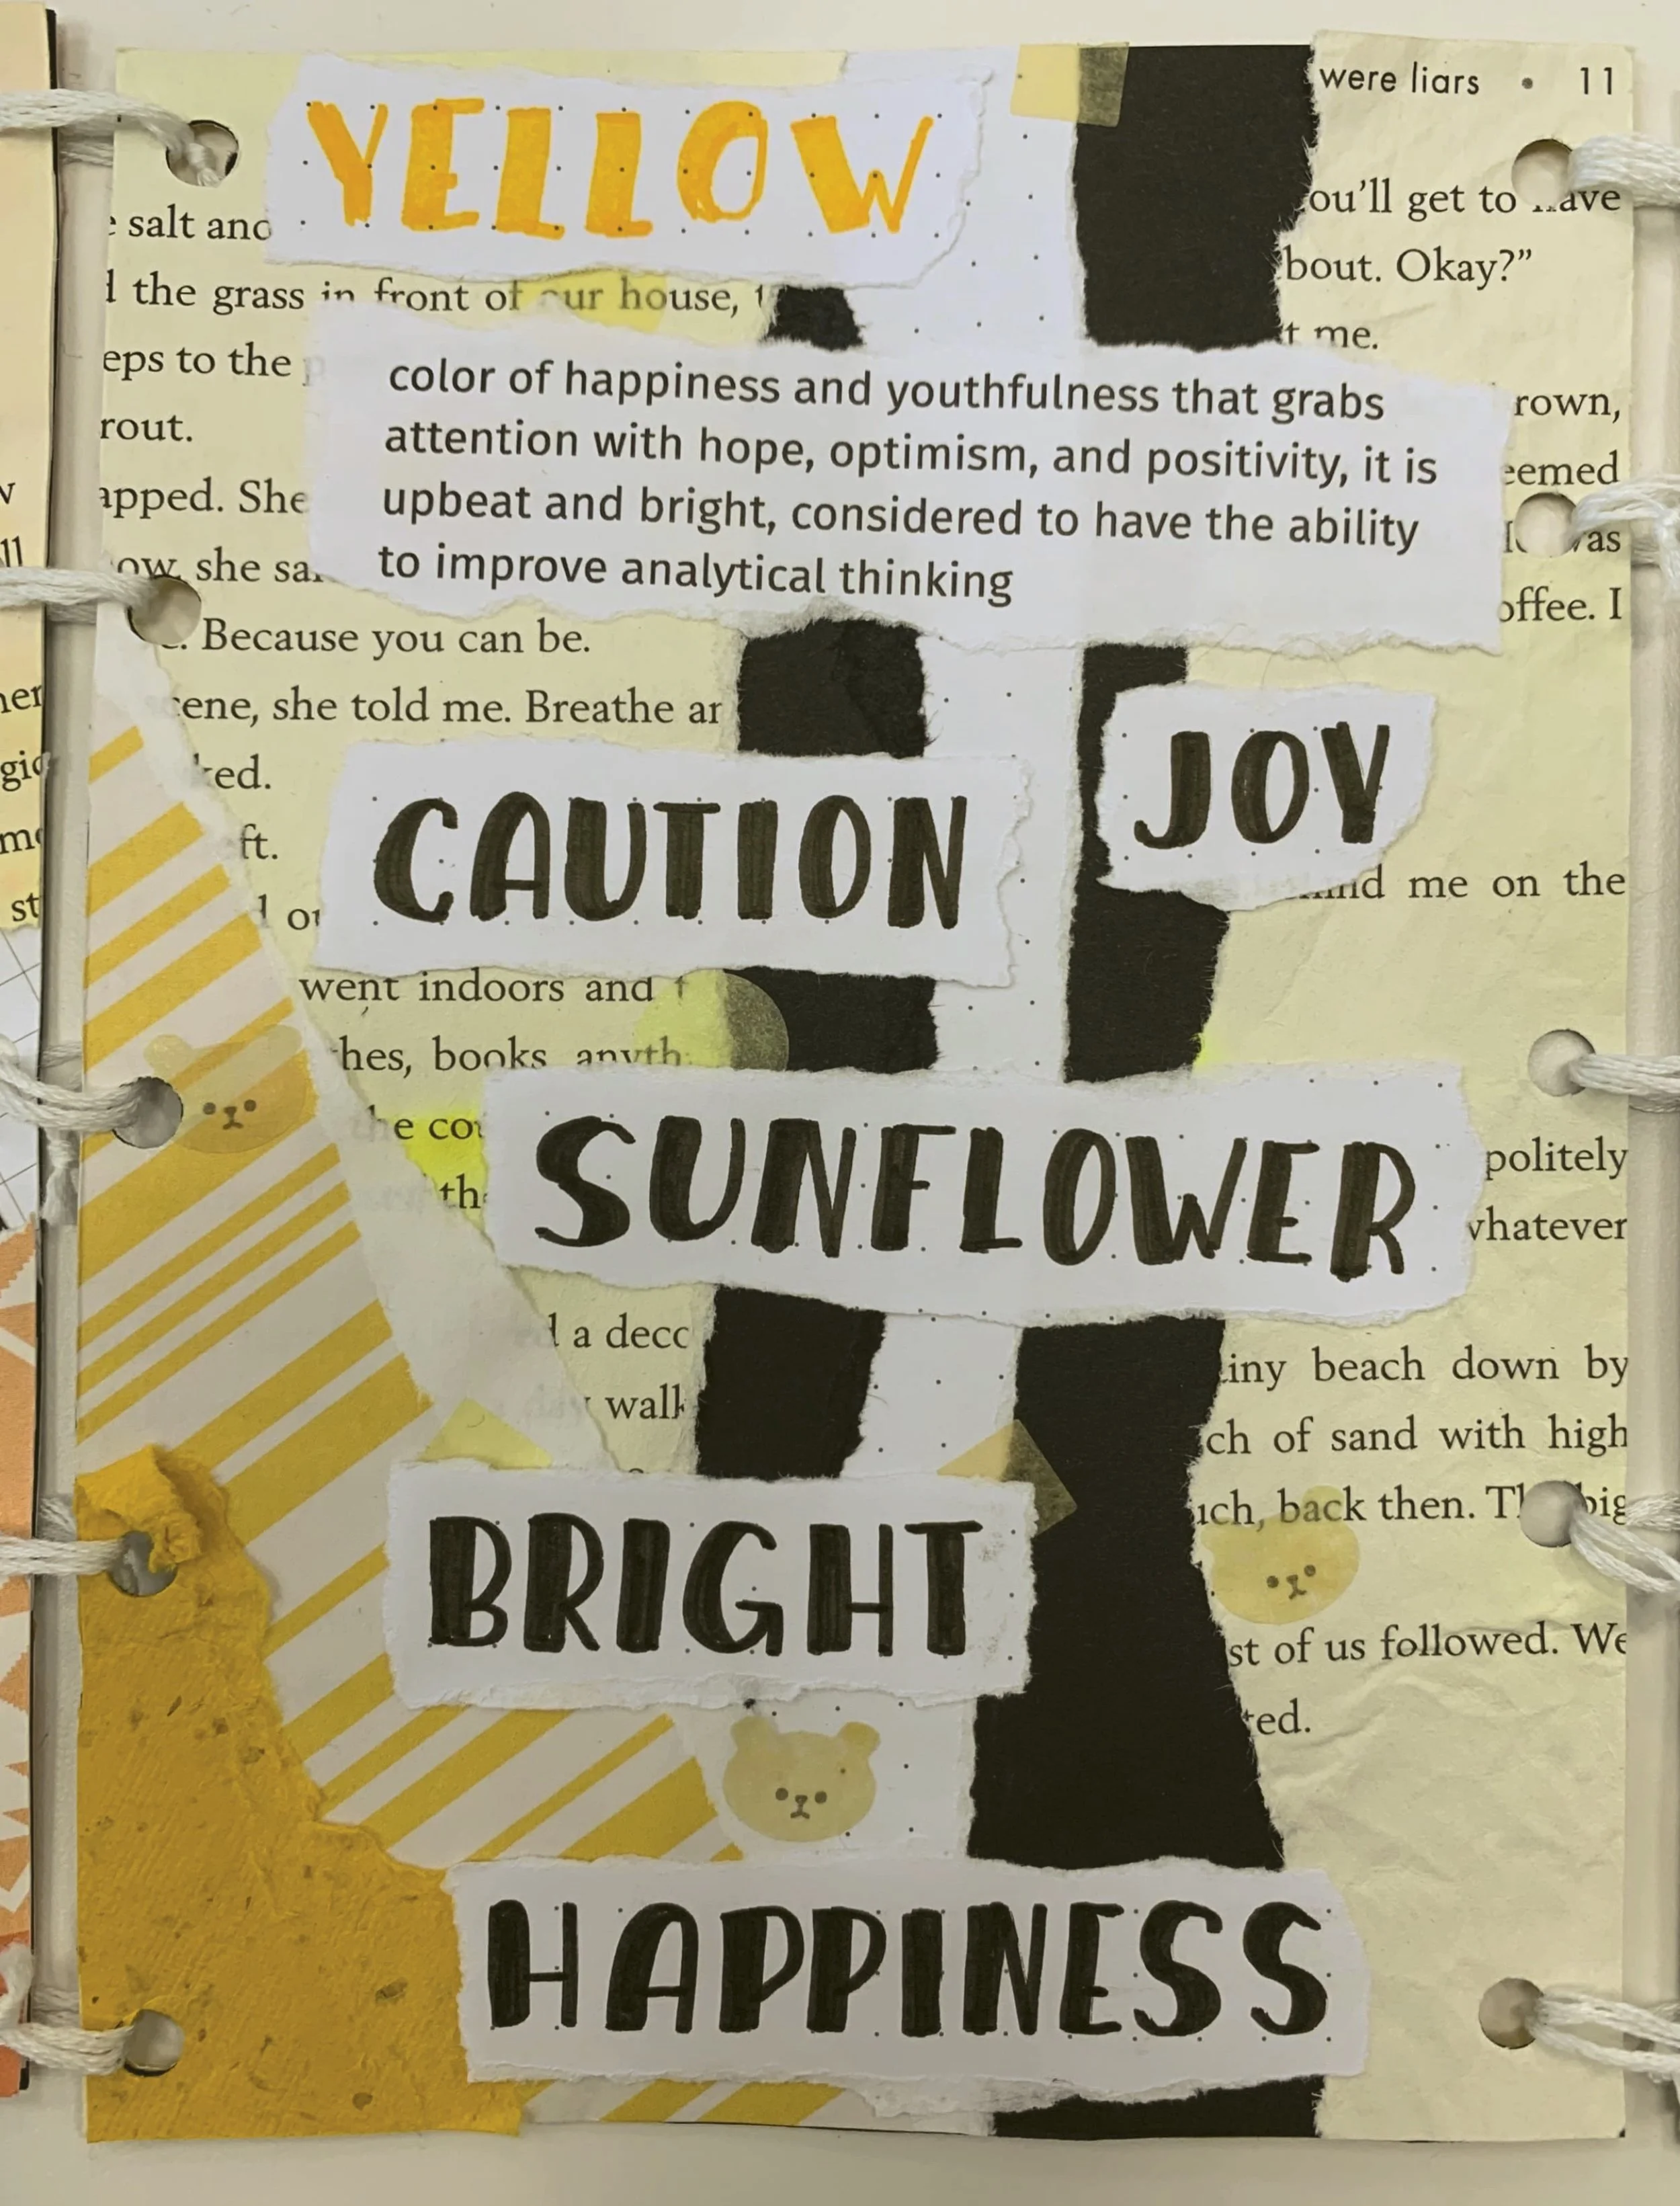 were liars • 11
YELLOW
salt and
ou'll get to
bout. Okay?"
the grass in front of our house,
me.
color of happiness and youthfulness that grabs
attention with hope, optimism, and positivity, it is
upbeat and bright, considered to have the ability
to improve analytical thinking
eps to the
rown,
rout.
eemed
apped. She
as
ow, she
offee. I
Because you can be.
ene, she told me. Breathe
JOY
ked.
CAUTION
ft.
me on the
went indoors and
hes, books
SUNFLOWER
he
politely
whatever
a
iny beach down by
walk
ch of sand with high
uch, back then. big
BRIGHT
st of us followed. We
ted.
HAPPINESS